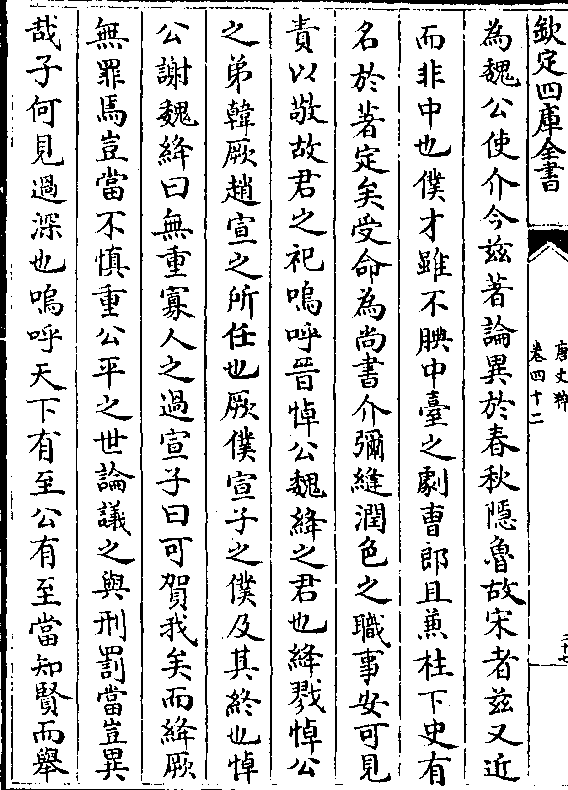 欽定四庫全書
唐文粹
卷四十二
為魏公使介今兹著論異於春秋隱魯故宋者兹又近
而非中也僕才雖不腆中臺之劇曹郎且兼柱下史有
名於著定矣受命為尚書介彌縫潤色之職事安可見
責以敬故君之祀嗚呼晉悼公魏絳之君也絳戮悼公
之弟韓厥趙宣之所任也厥僕宣子之僕及其終也悼
公謝魏絳曰無重寡人之過宣子曰可賀我矣而絳厥
無罪焉豈當不慎重公平之世論議之與刑罰當豈異
哉子何見過深也嗚呼天下有至公有至當知賢而舉